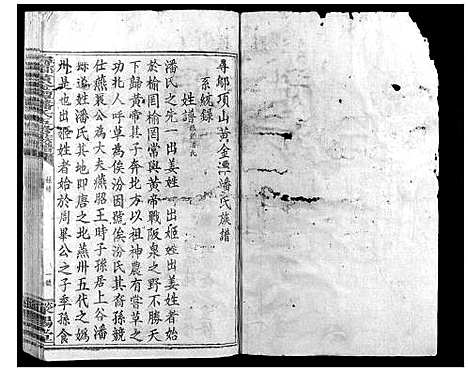 尋鄔項山黄金潭潘氏族譜
系統録
姓譜
潘氏之先一出姜姓一出姬姓出姜姓者始
於榆罔榆罔當與黄帝戰阪泉之野不勝天
下歸黄帝其子奔北方以祖神農有嘗草之
功北人呼草為俟汾因號俟汾氏其裔孫競
仕燕襄公為大夫燕昭王時子孫居上谷潘
縣遂姓潘氏其地即唐之北燕州五代之媯
州是也出姬姓者始於周畢公之子季孫食